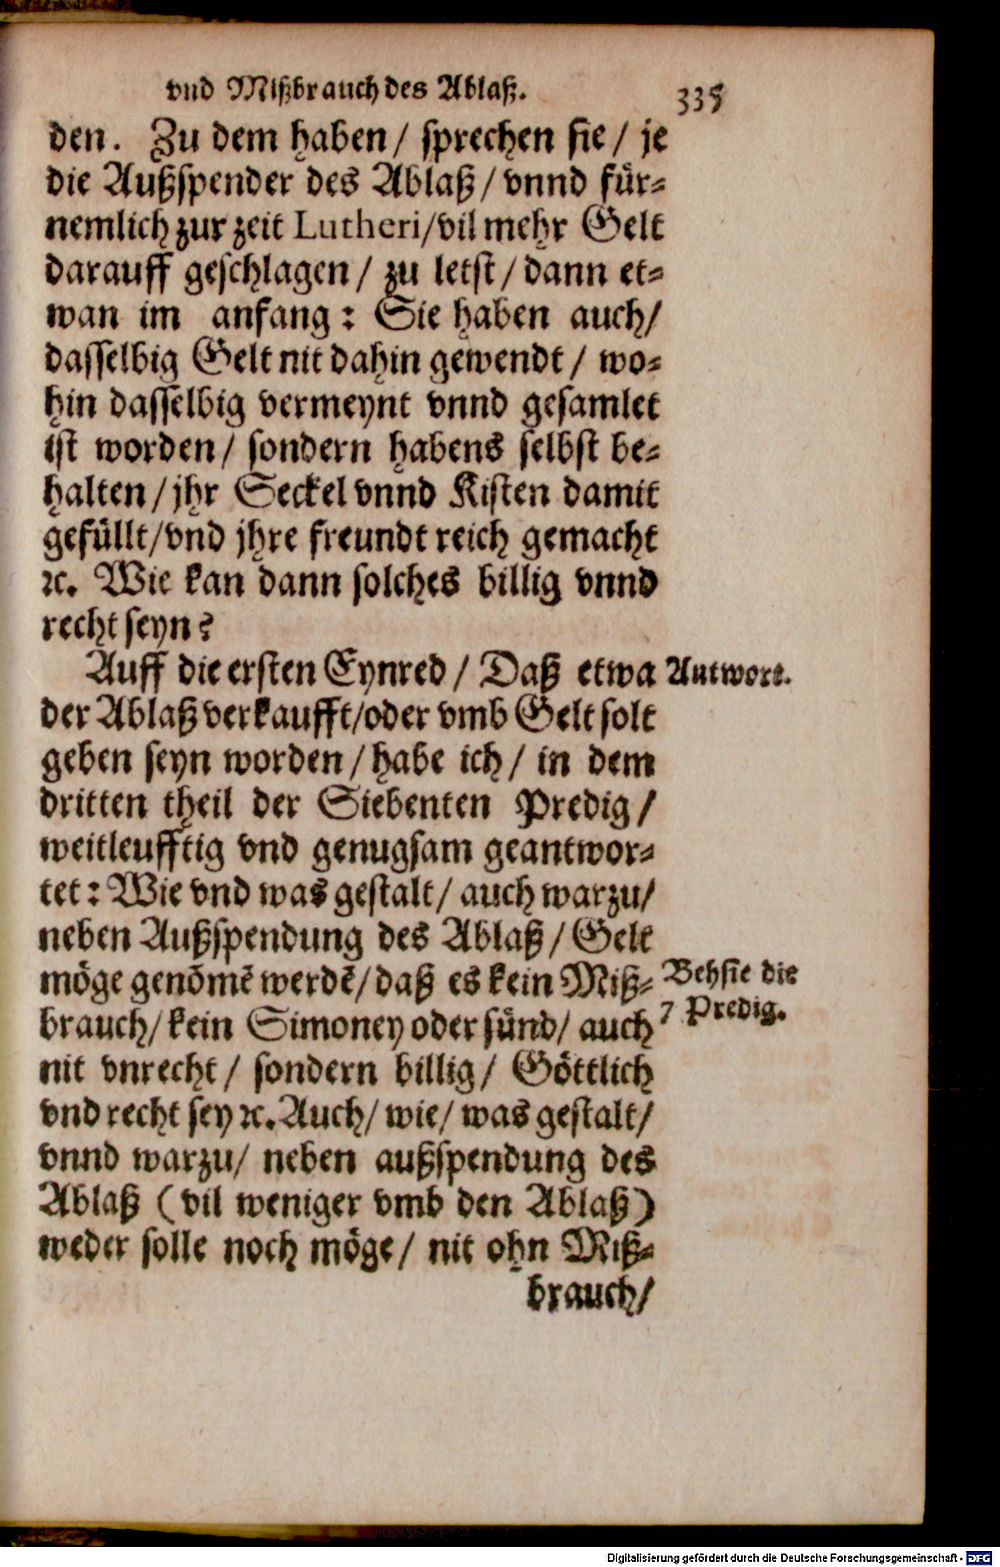 vnd Mißbrauch des Ablaß. 335
den. Zu dem haben / sprechen sie / je
die Außspender des Ablaß / vnnd für-
nemlich zur zeit Lutheri/vil mehr Gelt
darauff geschlagen / zu letst / dann et-
wan im anfang : Sie haben auch/
dasselbig Gelt nit dahin gewendt / wo-
hin dasselbig vermeynt vnnd gesamlet
ist worden / sondern habens selbst be-
halten / jhr Seckel vnnd Kisten damit
gefüllt/vnd jhre freundt reich gemacht
ꝛc. Wie kan dann solches billig vnnd
recht seyn?
Auff die ersten Eynred / Daß etwa
Antwort.
der Ablaß verkaufft/oder vmb Gelt solt
geben seyn worden / habe ich / in dem
dritten theil der Siebenten Predig /
weitleufftig vnd genugsam geantwor-
tet : Wie vnd was gestalt / auch warzu/
neben Außspendung des Ablaß / Gelt
möge genõmẽ werdẽ/daß es kein Miß-
brauch/ kein Simoney oder sünd/ auch
Behsie die
7 Predig.
nit vnrecht / sondern billig / Göttlich
vnd recht sey ꝛc. Auch/ wie/ was gestalt/
vnnd warzu/ neben außspendung des
Ablaß (vil weniger vmb den Ablaß)
weder solle noch möge / nit ohn Miß-
brauch/
Digitalisierung gefördert durch die Deutsche Forschungsgemeinschaft - DFG